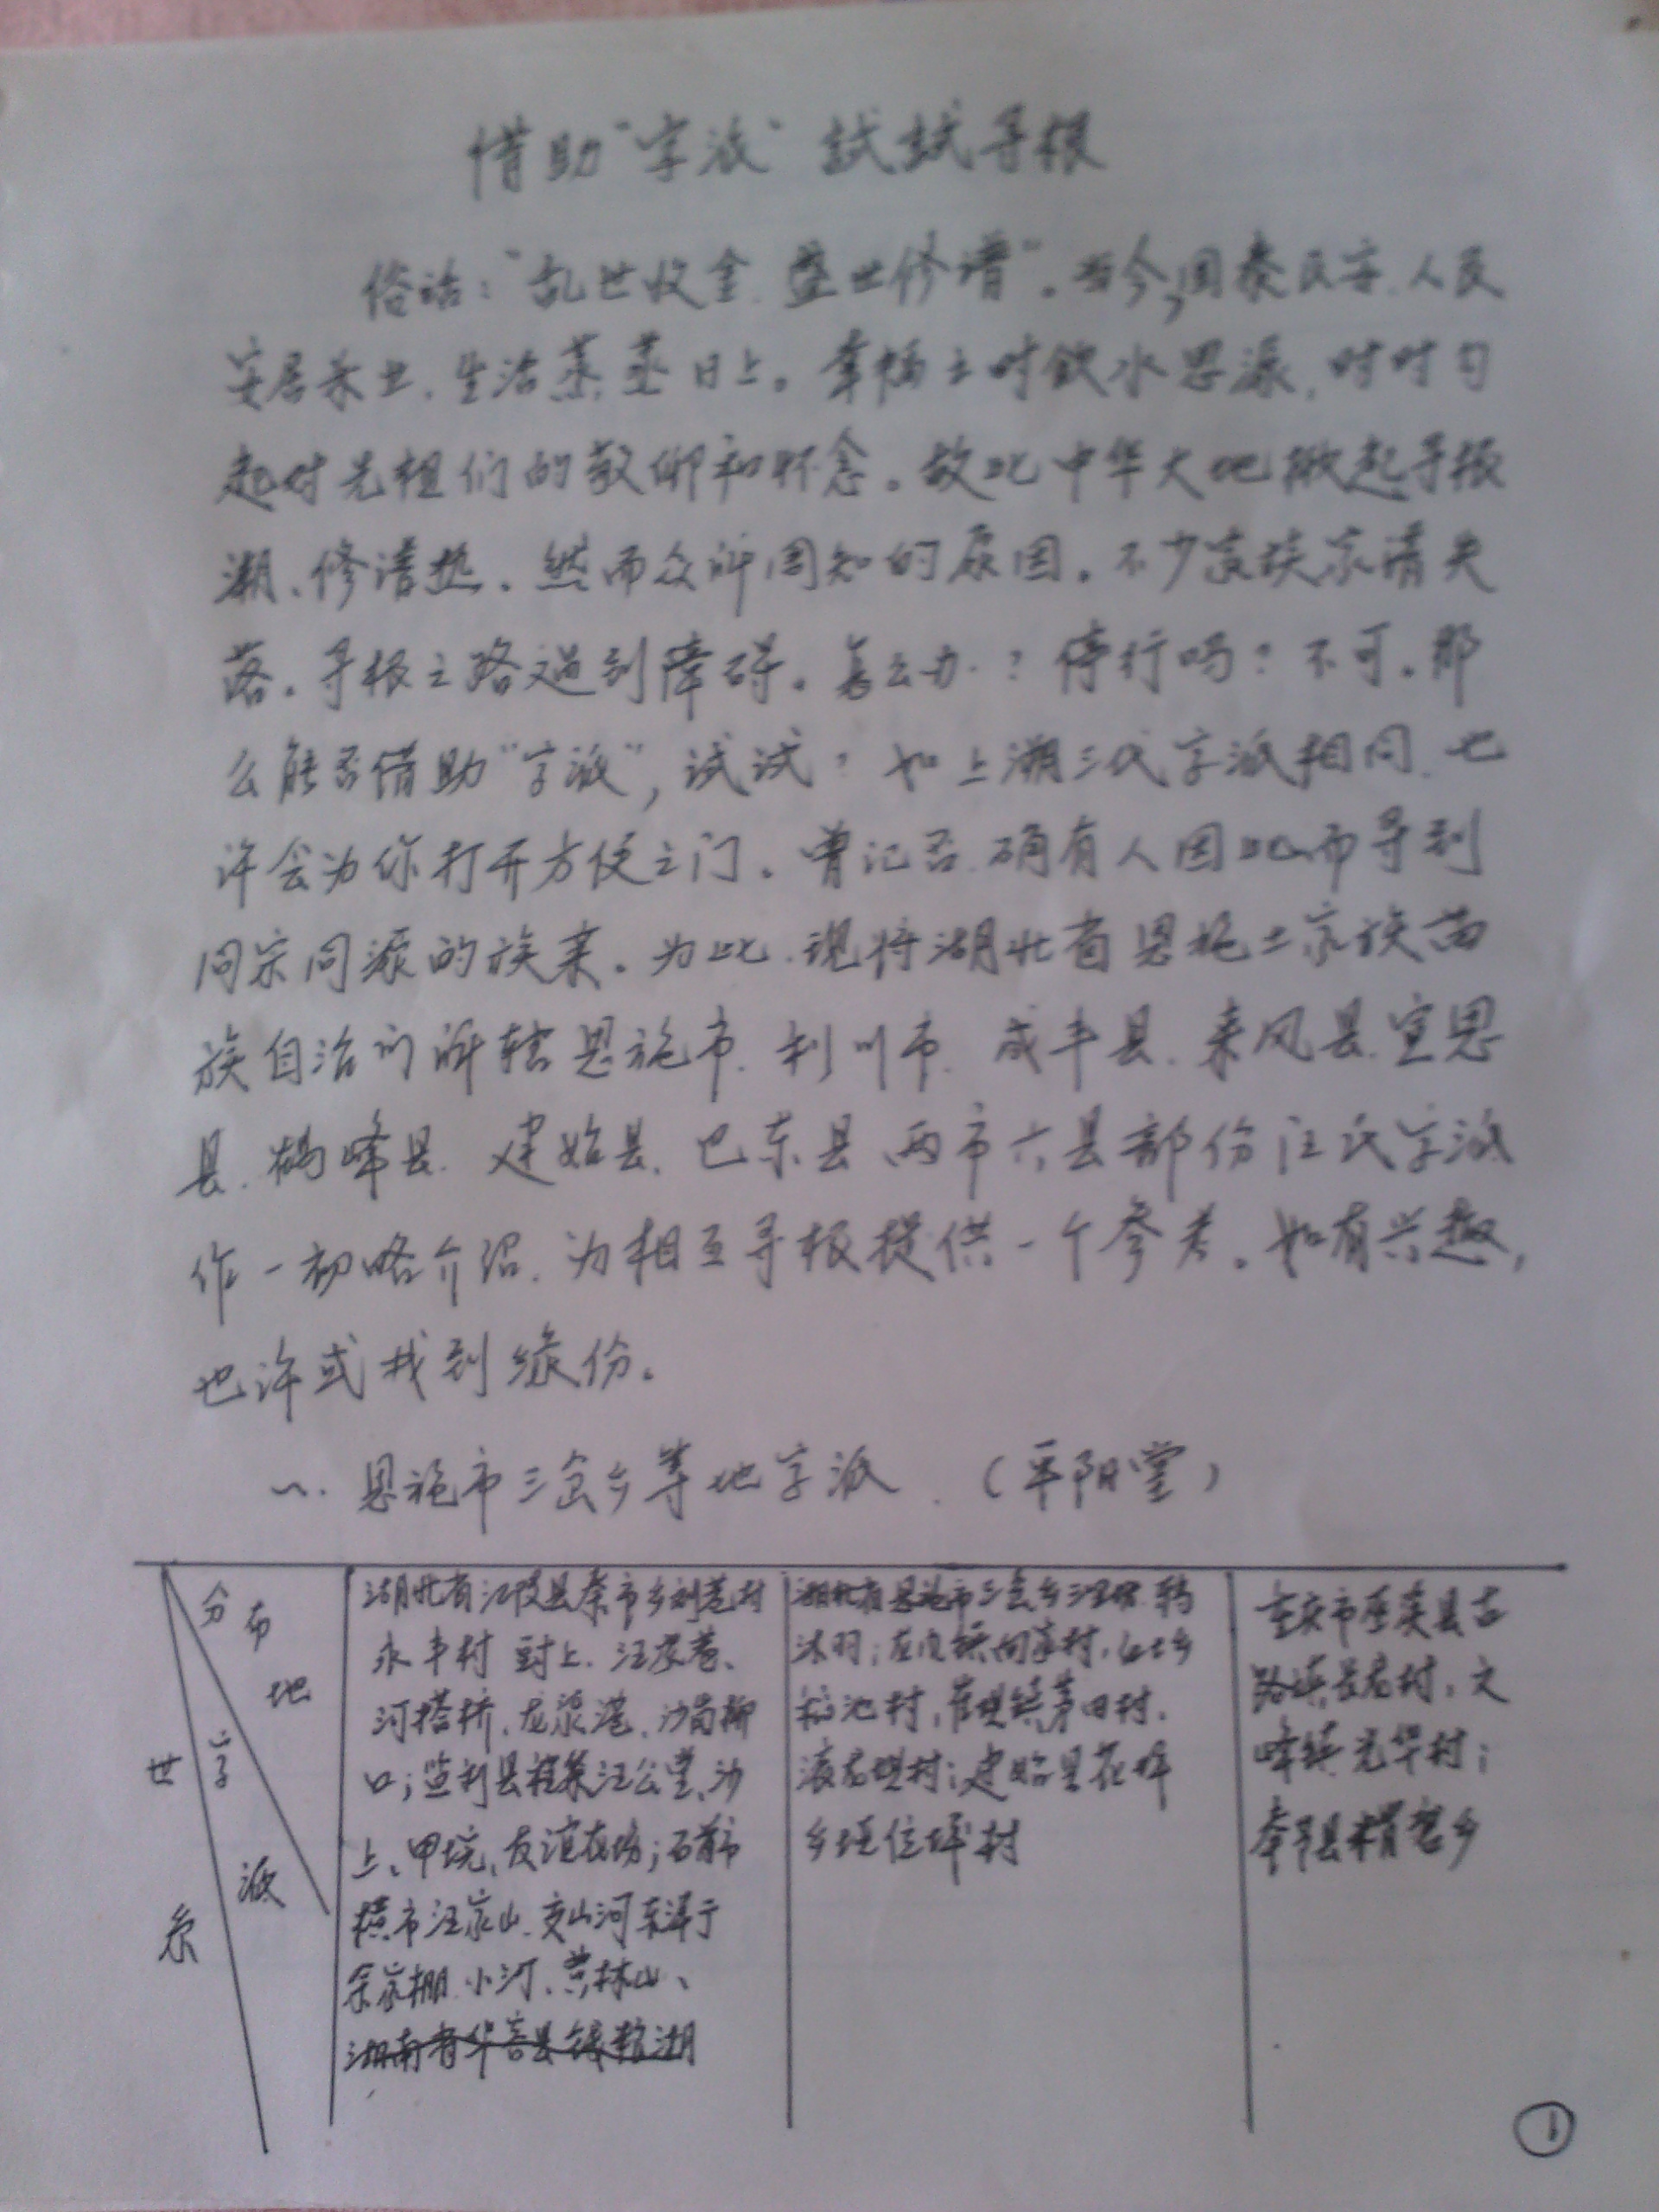 借助“字派”試試寻根
俗话:“乱世收金.盛世修谱”。当今,国泰民安.人民
安居乐业.生活蒸蒸日上。幸福之时饮水思源,时时勾
起对先祖们的敬仰和怀念。故此中华大地掀起寻根
潮、修谱热.然而众所周知的原因。不少家族家谱失
落。寻根之路遇到障碍。怎么办.?停行吗?不可。那
么能否借助“字派”,试试?如上溯三代字派相同.也
许会为你打开方便之门。曾记否.确有人因此而寻到
同宗同源的族亲。为此.现将湖北省恩施土家族苗
族自治州所辖恩施市.利川市.咸丰县.来凤县.宣恩
县.鹤峰县.建始县.巴东县两市六县部份汪氏字派
作一初略介绍.为相互寻根提供一个参考。如有兴趣,
也许或找到缘份。
一.恩施市三岔乡等地字派.(平阳堂)
分布地
字派
世系
湖北省江陵县秦市乡刘巷村
永丰村 上.汪家巷、
河搭桥、龙泉港.沙岗柳
口;监利县程集汪公堂、沙
上、甲垸、友谊农场;石首市
横市汪家山.
余家棚.小河、黄林山、
湖南省华容县钱粮湖
湖北省恩施市三岔乡汪家
沐羽;向家村.红土乡
村,崔坝镇茅田村.
滚龙坝村;建始县花坪
乡
重庆市巫溪县古
路镇长龙村.文
峰镇光华村;
奉节县乡
1